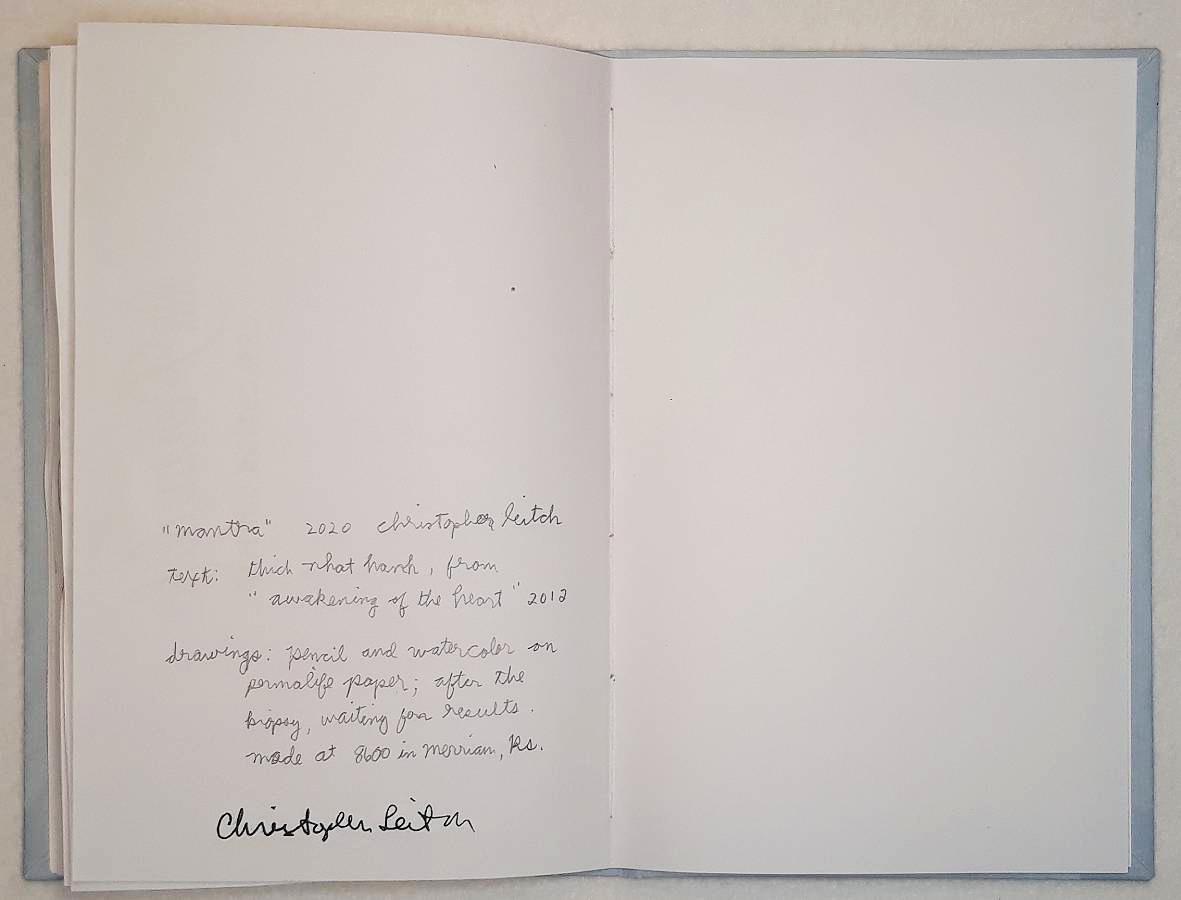 "mantra" 2020 christopher leitch
text: thich nhat hanh, from
"awakening of the heart" 2012
drawings: pencil and watercolor on
permalife paper; after the
biopsy, waiting for results.
made at 8600 in merriam, ks.
Christopher Leitch